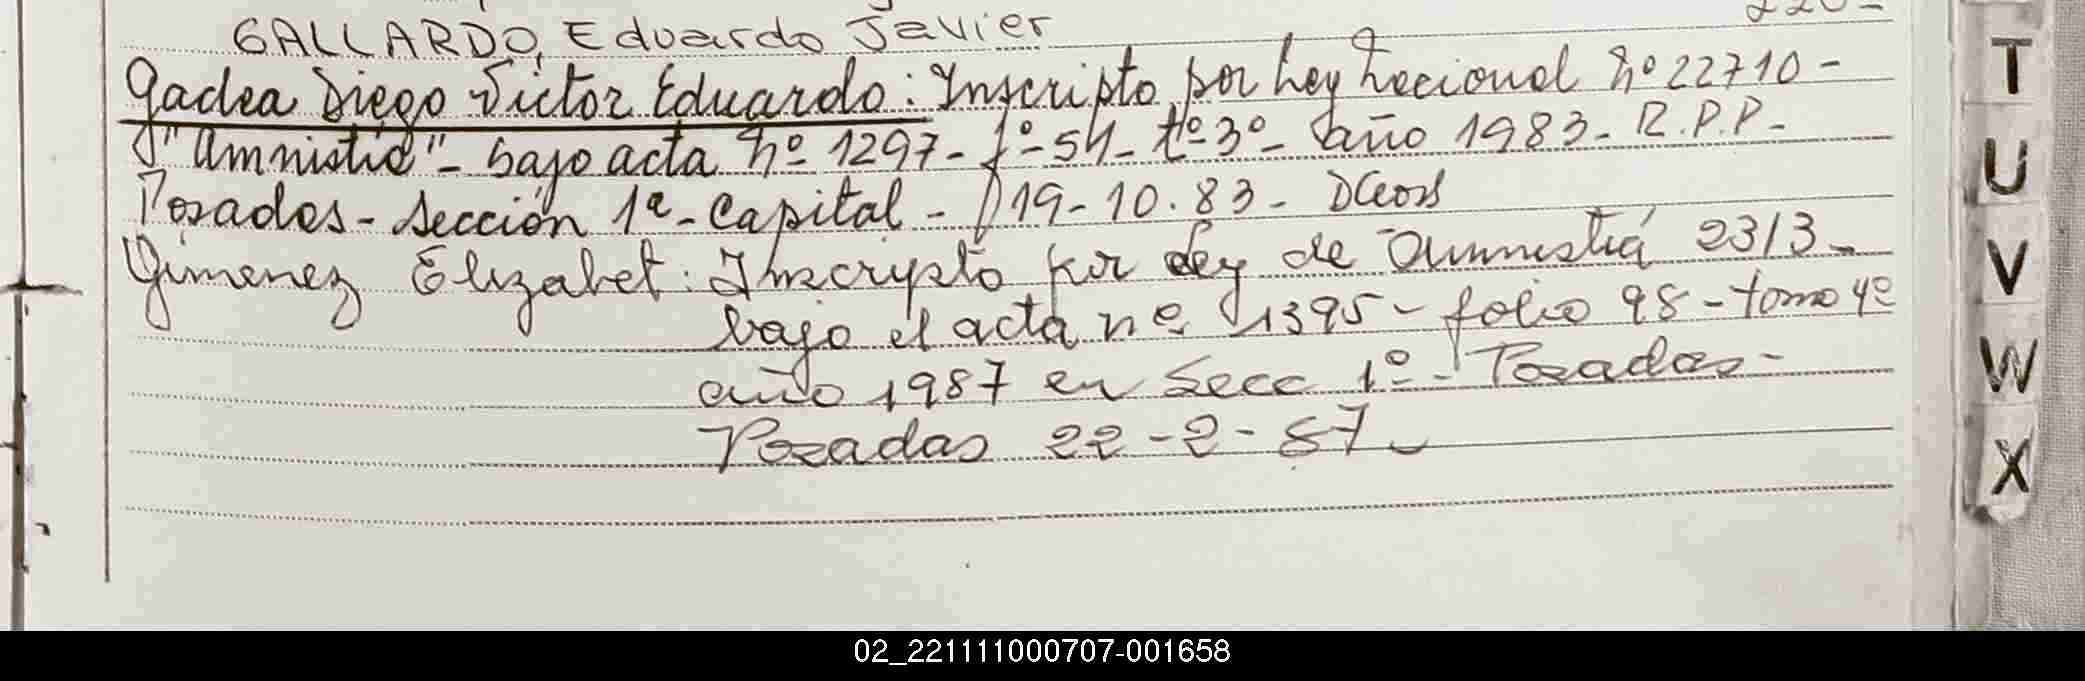 GALLARDO, Eduardo Javier
Gadea Diego Victor Eduardo: Inscripto por Ley Nacional nº 22710-
"Amnistia"- bajo acta nº 1297- fº-54- tº-3º- año 1983- R.P.P-
Posadas- Sección 1ª- Capital- 19-10.83-
Gimenez Elizabet: Inscrypto por Ley de Amnistiá 2313-
bajo el acta nº 1395- folio 98- tomo 4º
año 1987 en Secc 1º- Posadas-
Posadas 22-2-87-
T
U
V
W
X
02_221111000707-001658